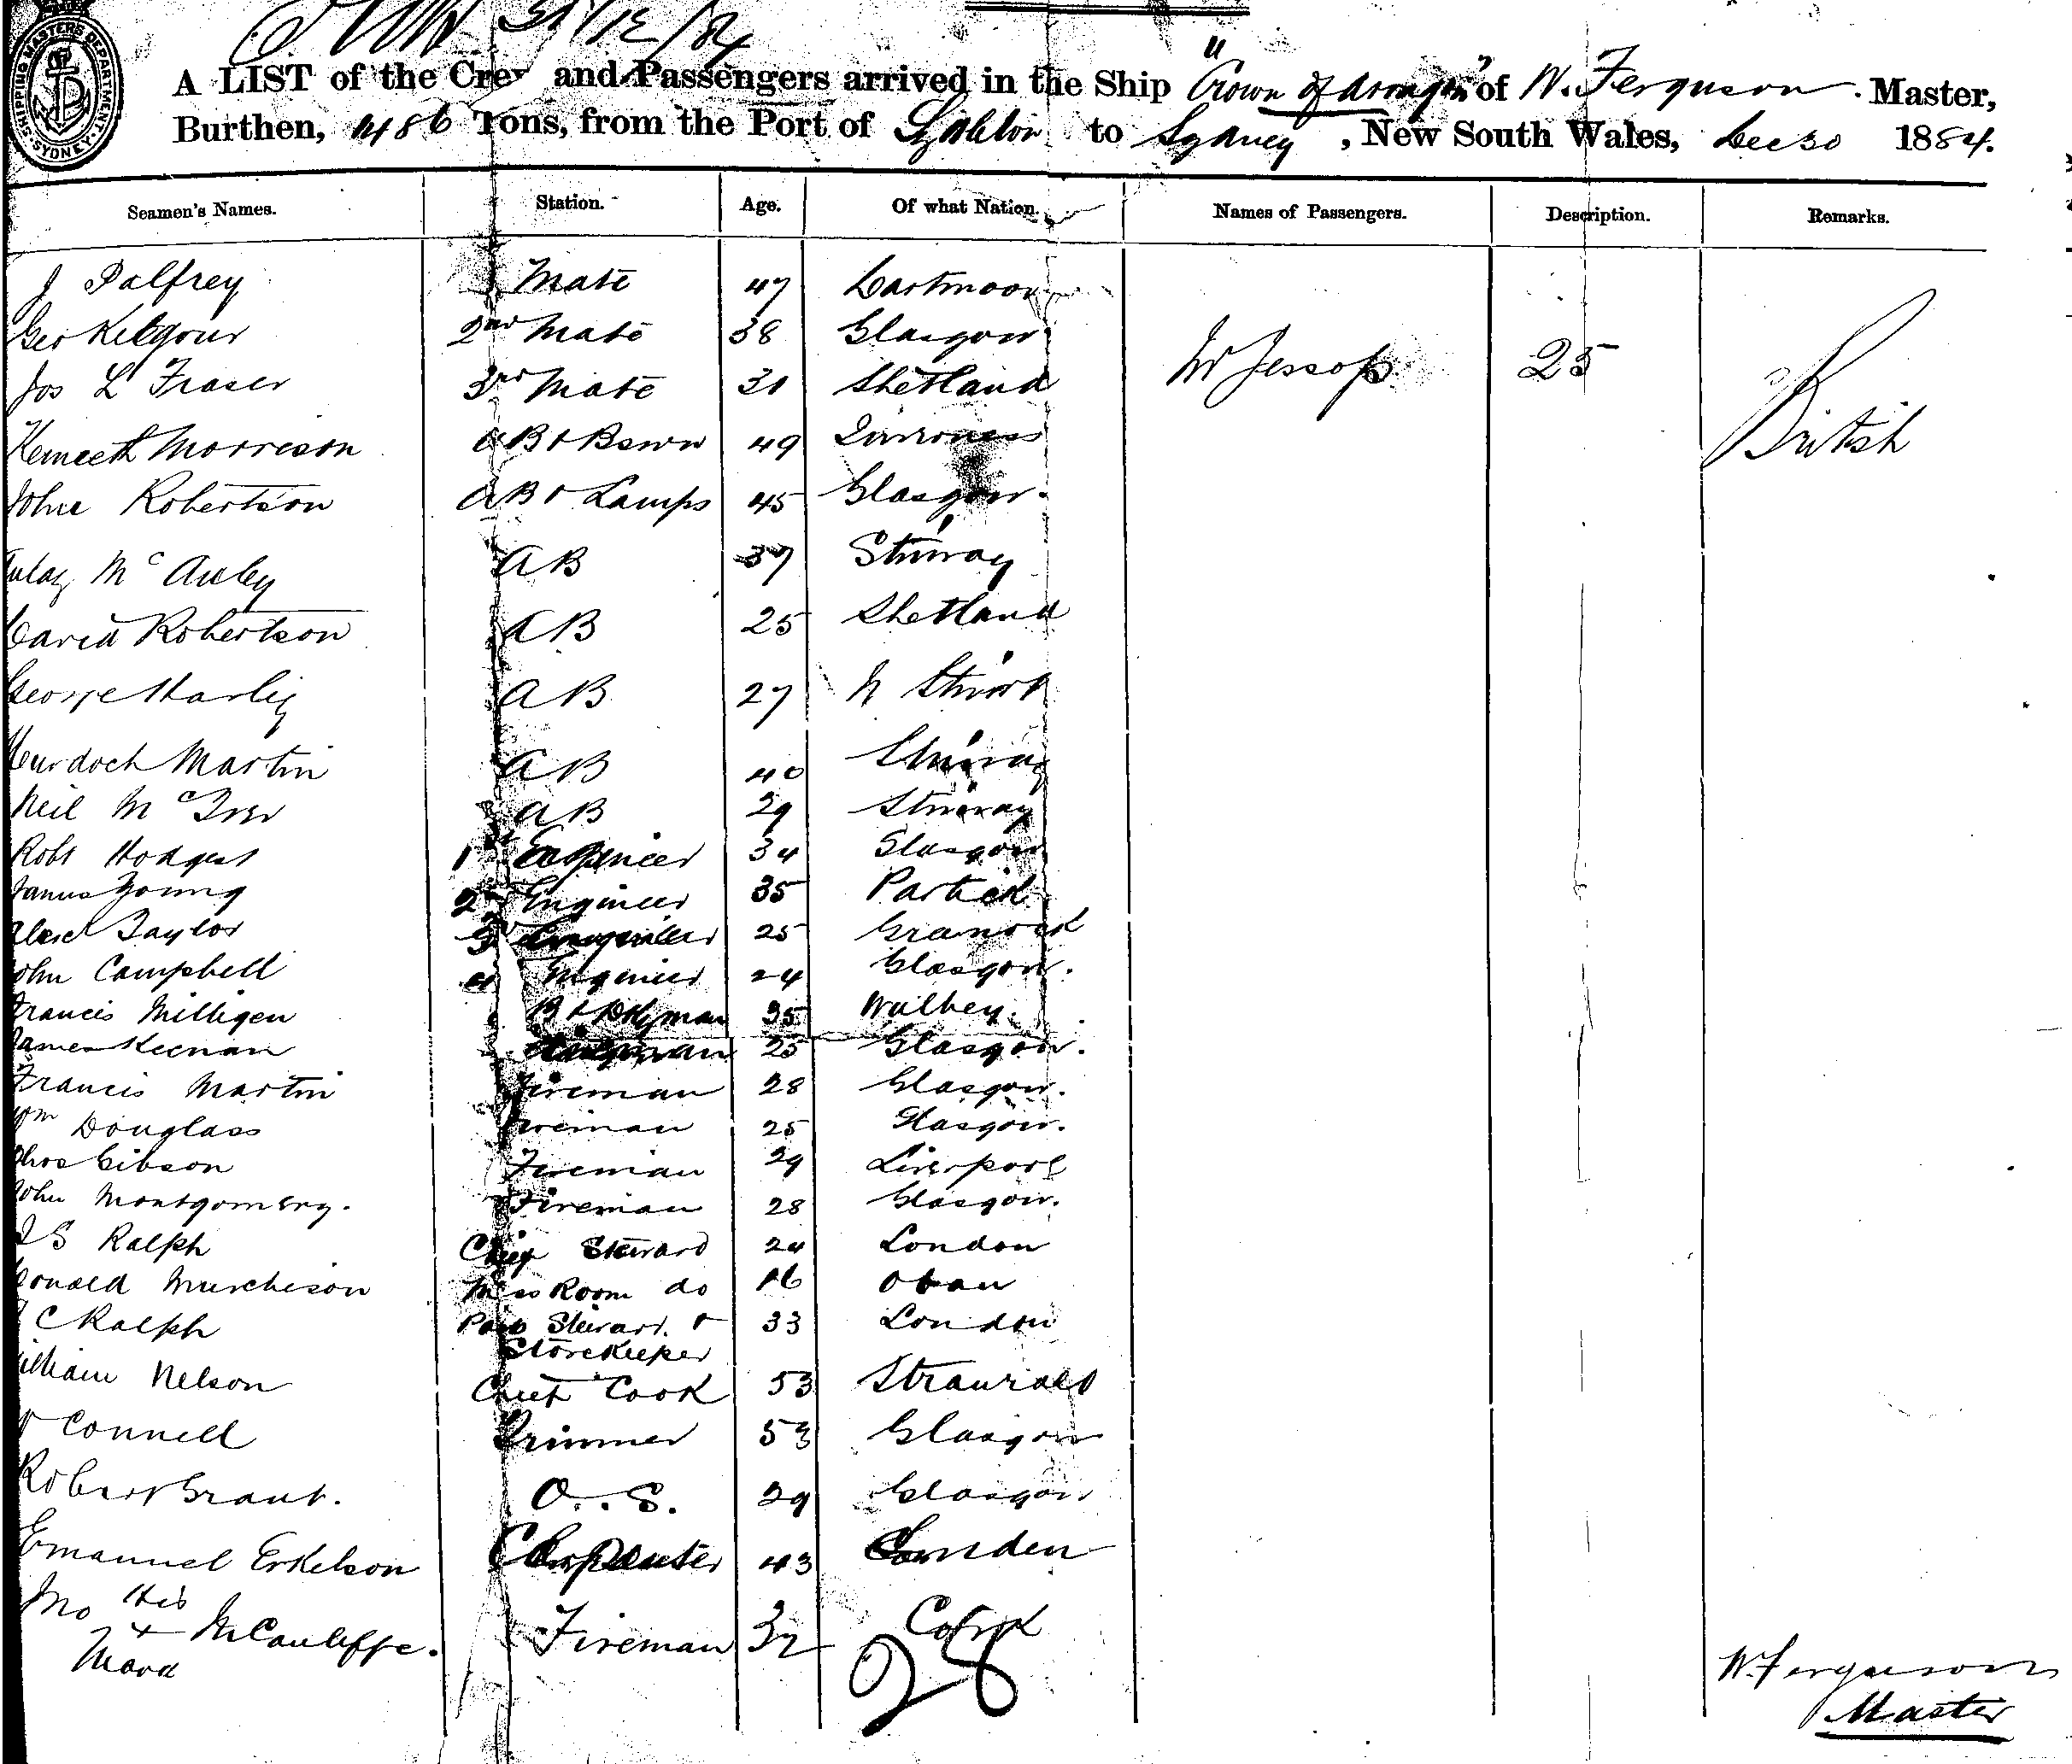 SHIPPING MASTERS DEPARTMENT
SYDNEY
31/12/84
A LIST of the Crew and Passengers arrived in the Ship "Crown of Arragon" of W. Ferguson. Master,
Burthen, 1486 Tons, from the Port of to Sydney, New South Wales, Dec 30 1884.
Seamen's Names. Station. Age. Of what Nation. Names of Passengers. Description. Remarks.
J Palfrey Mate 47 Dartmoor
Geo Kilgour 2nd Mate 38 Glasgow
Jos L Fraser 3rd Mate 31 Shetland W Jessop 25 British
Kenneth Morrison AB & Bswn 49 Inverness
John Robertson AB & Lamps 45 Glasgow.
Mc Auley AB 37 Stornoway
David Robertson AB 25 Shetland
George Harlig AB 27
Murdoch Martin AB 40 Stornoway
Neil McIver AB 29 Stornoway
Robt Hodgest 1st Engineer 34 Glasgow
James Young 2nd Engineer 35 Partick
Alexr Taylor 3rd Engineer 25 Greenock
John Campbell 4 Engineer 24 Glasgow.
Francis Milligen B & Dkyman 35
James Keenan 25 Glasgow.
Francis Martin Fireman 28 Glasgow.
Wm Douglass Fireman 25 Glasgow.
Thos Gibson Fireman 29 Liverpool
John Montgomery. Fireman 28 Glasgow.
S Ralph Chief Steward 24 London
Donald Murcheson Mess Room do 16 Oban
C Ralph Pass Steward & 33 London
Storekeeper
William Nelson Chief Cook 53 Stranraer
Connell Trimmer 53 Glasgow
Robert Grant. O.S. 29 Glasgow
Emanuel Erkelson Carpenter 43
Jno His
+ McCauliffe. Fireman 32 Cork
Mark
28
W. Ferguson
Master